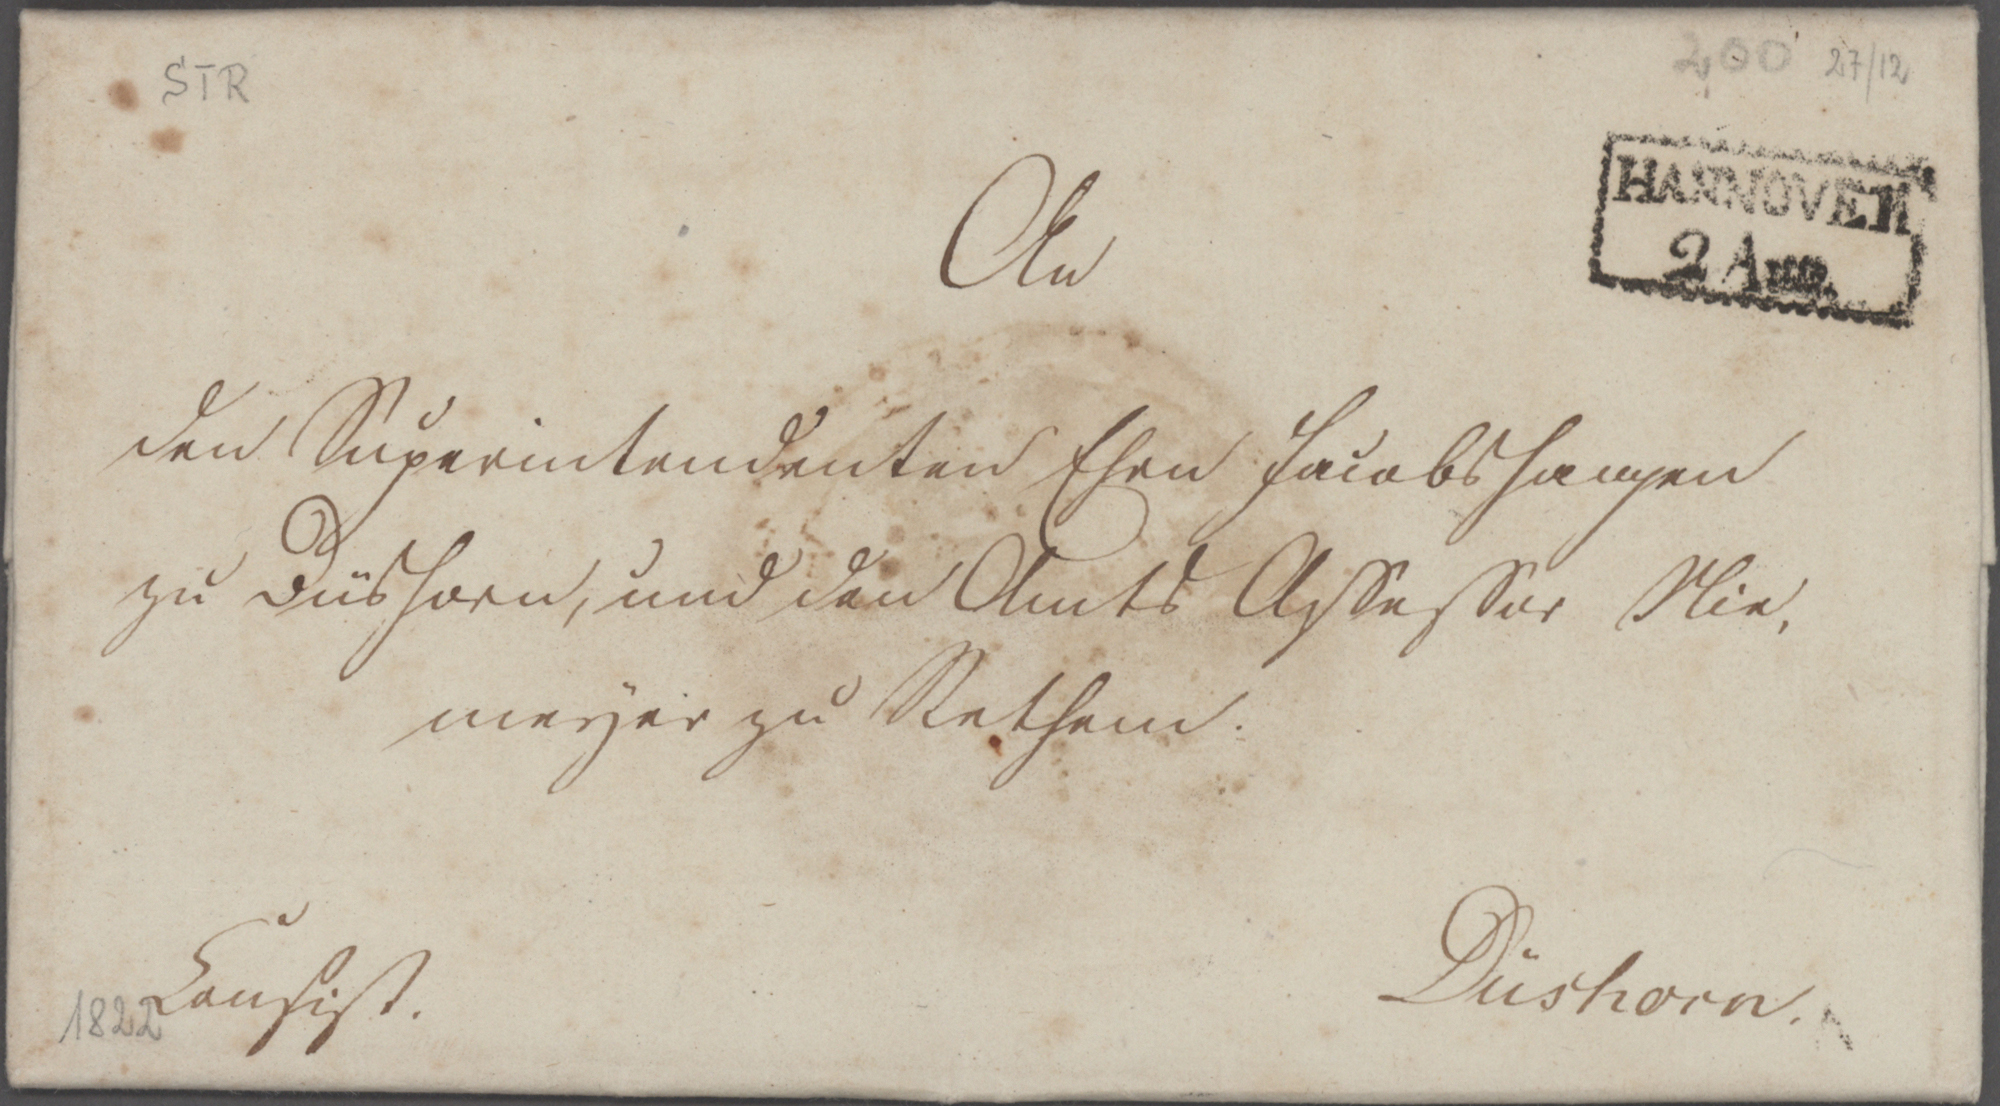 STR
2,00 27/12
HANNOVER
2 Aug.
An
den Superintendenten Ehrn Jacobshagen
zu Düshorn, und den Amts Assessor Nie,
meyer zu Rethem.
Consist.
1822
Düshorn.